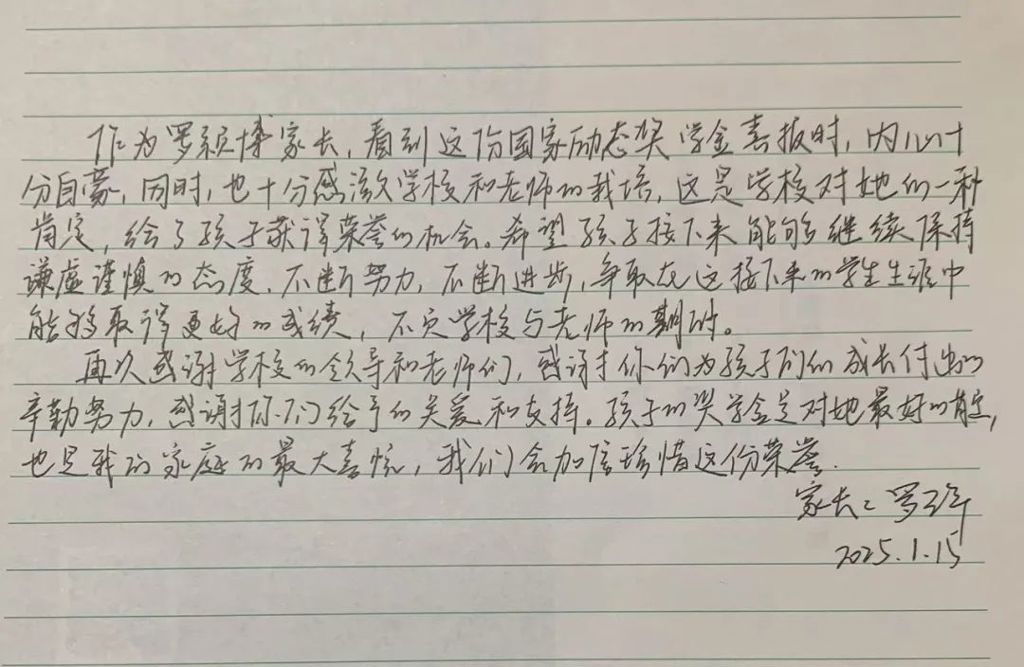 作为罗颖博家长，看到这份国家励志奖学金喜报时，内心十
分自豪，同时，也十分感激学校和老师的栽培，这是学校对她的一种
肯定，给了孩子获得荣誉的机会。希望孩子接下来能够继续保持
谦虚谨慎的态度，不断努力，不断进步，争取在这接下来的学生生涯中
能够取得更好的成绩，不负学校与老师的期盼。
再次感谢学校的领导和老师们，感谢你们为孩子们的成长付出的
辛勤努力，感谢你们给予的关爱和支持。孩子的奖学金是对她最好的肯定，
也是我们家庭的最大喜悦，我们会加倍珍惜这份荣誉.
家长：罗
2025.1.15